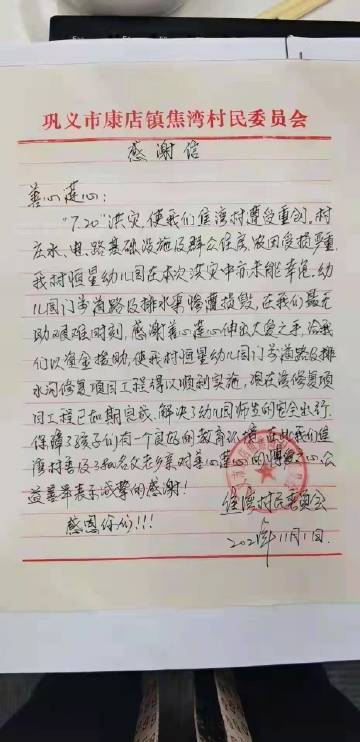 巩义市康店镇焦湾村民委员会
感谢信
善心莲心：
"7.20"洪灾，使我们焦湾村遭受重创。村
庄水、电、路基础设施及群众住房、农田受损严重，
我村恒星幼儿园在本次洪灾中亦未能幸免，幼
儿园门前道路及排水渠惨遭损毁，在我们最无
助艰难时刻，感谢善心莲心伸出大爱之手，给我
们以资金援助，使我村恒星幼儿园门前道路及排
水沟修复项目工程得以顺利实施，现在该修复项
目工程已如期完成，解决了幼儿园师生的安全出行，
保障了孩子们有一个良好的教育环境，在此我们焦
湾村委及 名父老乡亲对善心莲心的博爱之心公
益善举表示诚挚的感谢！
感恩你们!!!
焦湾村民委员会
2021年11月1日